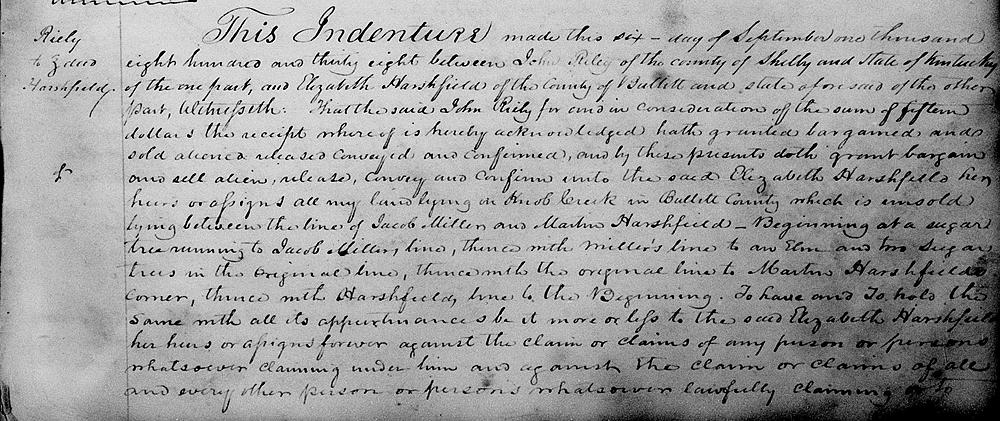 Riely
to } deed
Harshfield
This Indenture made this six - day of September one thousand
eight hundred and thirty eight between John Riley of the county of Shelby and State of Kentucky
of the one part, and Elizabeth Harshfield of the County of Bullett and state aforesaid of the other
part, Witnesseth: That the said John Riely for and in consideration of the sum of fifteen
dollars the receipt whereof is hereby acknowledged hath granted bargained and
sold aliened released conveyed and confirmed, and by these presents doth grant bargain
and sell alien, release, convey and confirm unto the said Elizabeth Harshfield her
heirs or assigns all my land lying on Knob Creek in Bullett County which is unsold
lying between the line of Jacob Miller and Martin Harshfield - Beginning at a sugar
tree running to Jacob Millers line, thence with Miller's line to an Elm and two Sugar
trees in the original line, thence with the original line to Martin Harshfields
corner, thence with Harshfields line to the Beginning. To have and To hold the
same with all its appertinances be it more or less to the said Elizabeth Harshfield
her heirs or assigns forever against the claim or claims of any person or persons
whatsoever claiming under him and against the claim or claims of all
and every other person or persons whatsoever lawfully claiming or to